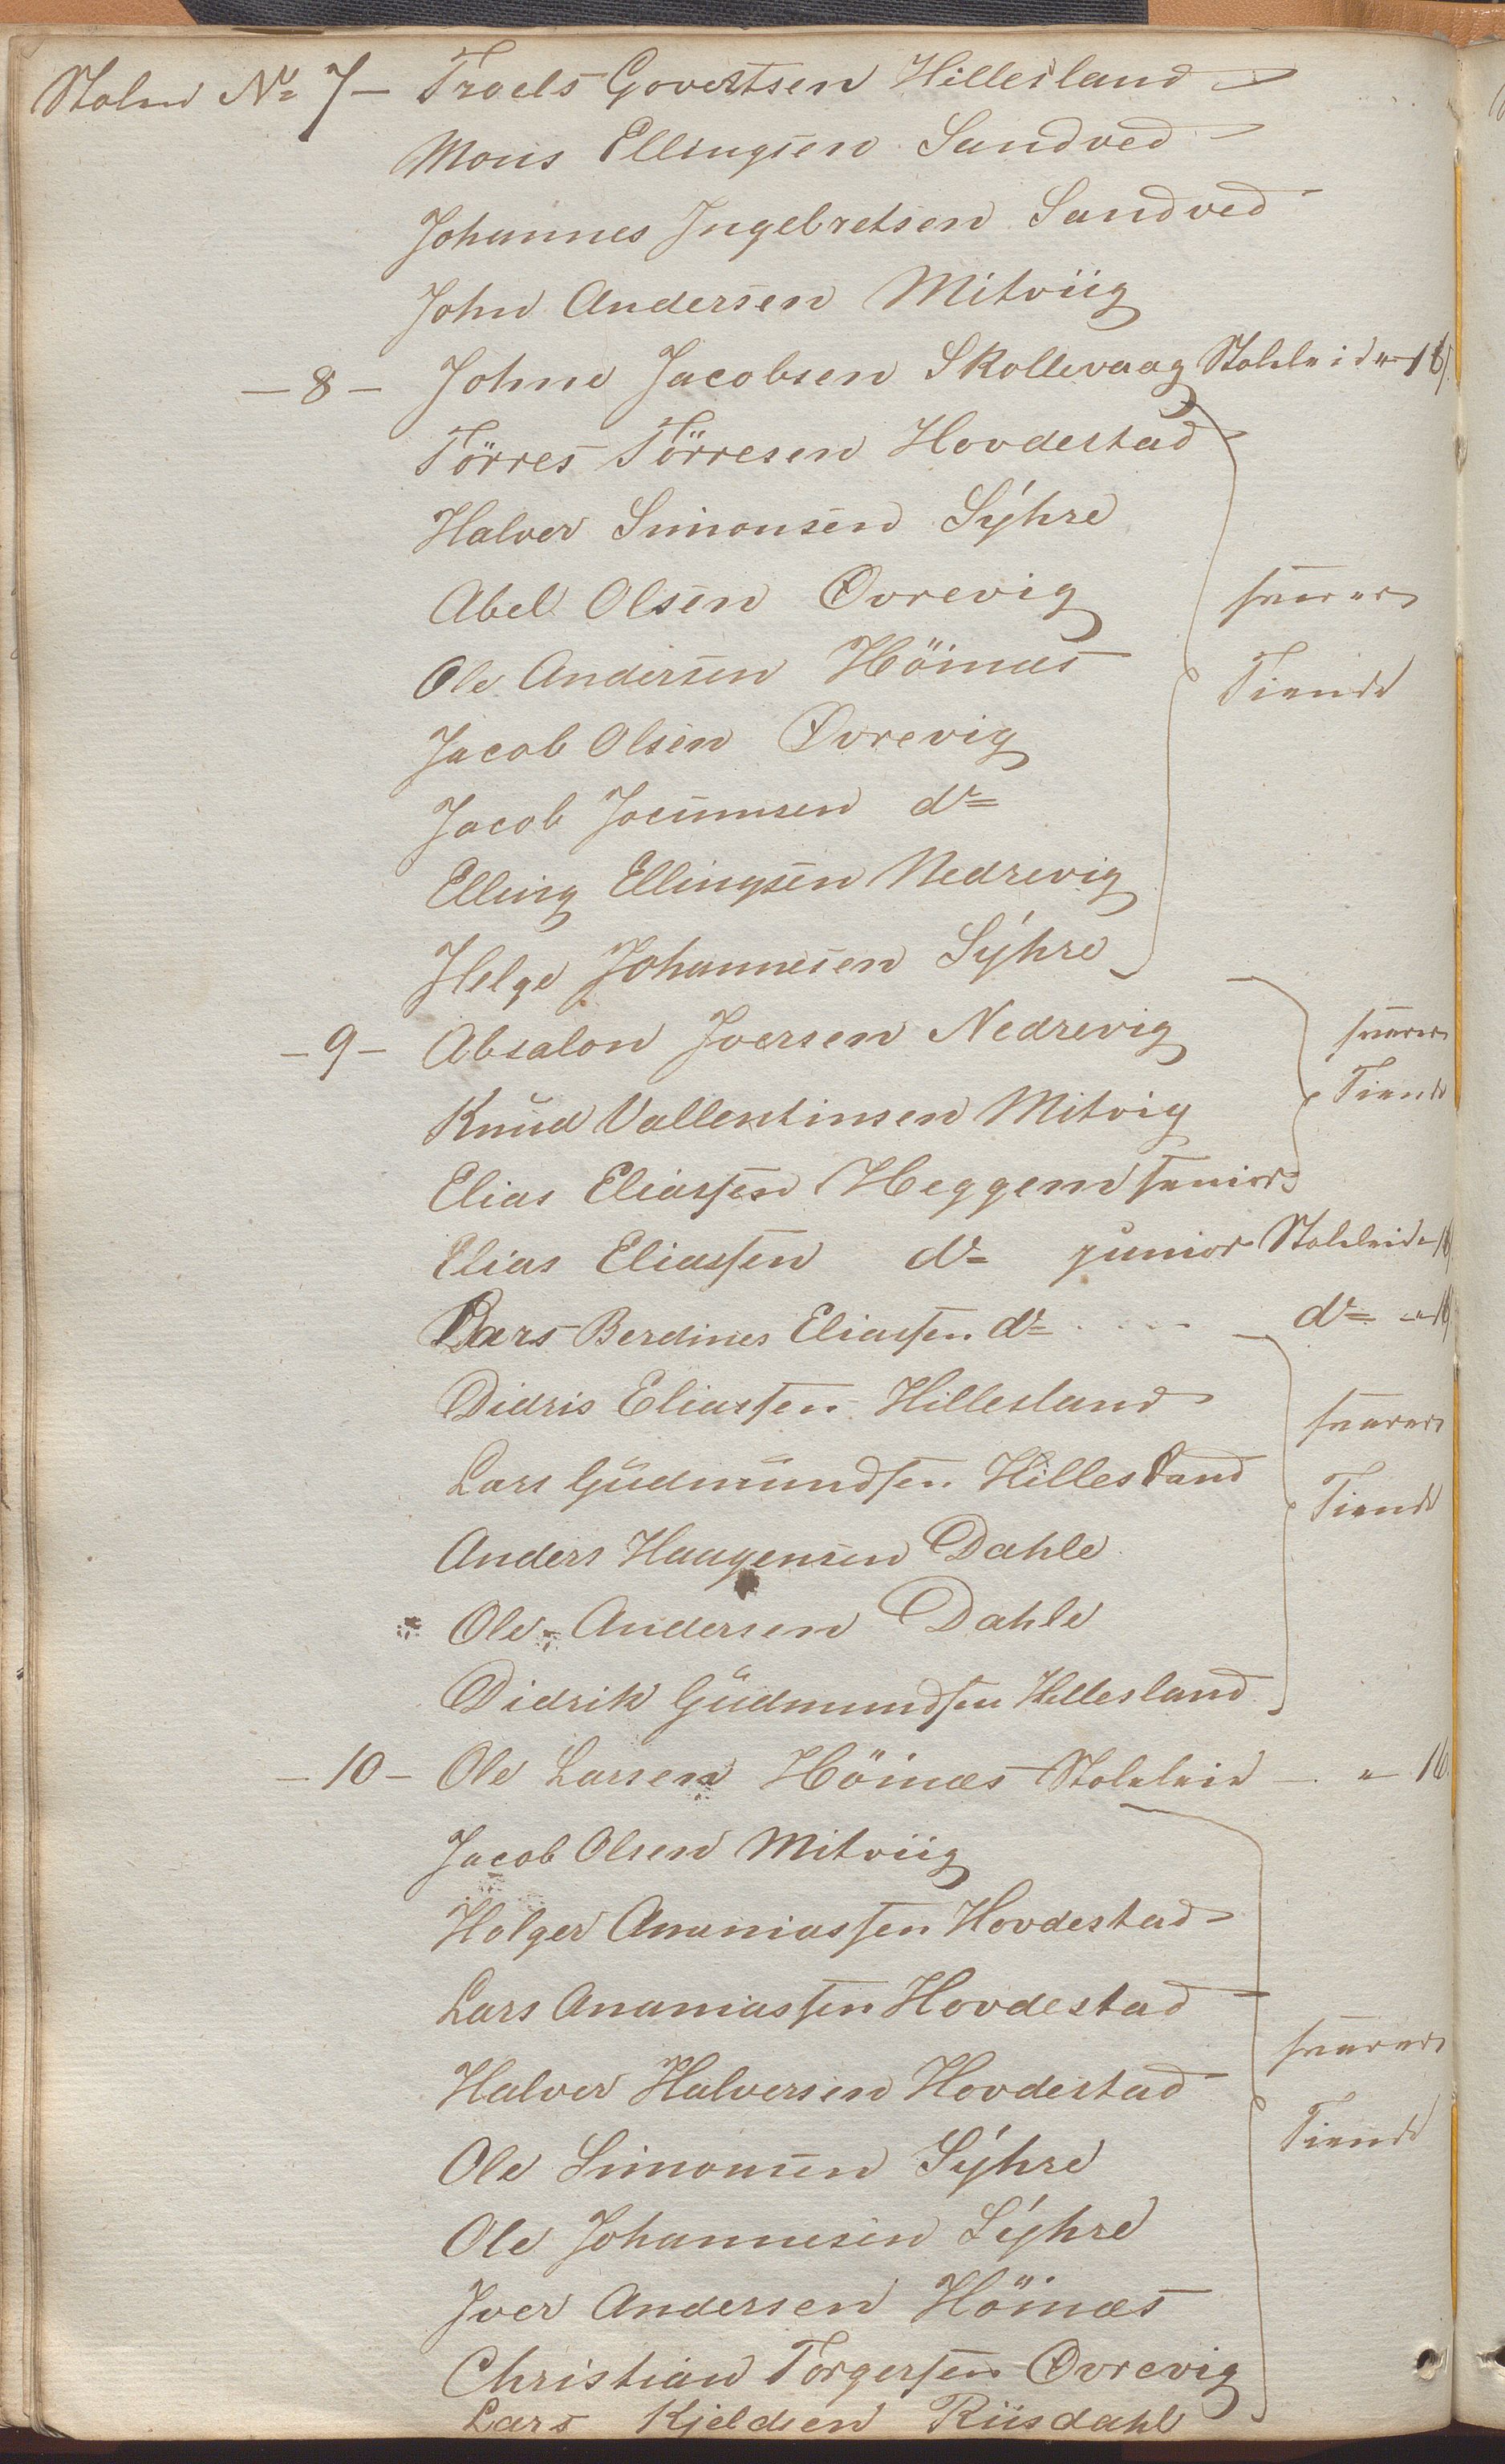 Stolen No 7 — Troels Govertsen Hillesland
Mons Ellingsen Sandved
Johannes Ingebretsen Sandved
John Andersen Mitviig
— 8 — Johne Jacobsen Skollevaag Stoleleie " 16
Törres Törresen Hovdestad
Halver Simonsen Sÿhre
Abel Olsen Øvrevig svarer
Ole Andersen Höinæs Tiende
Jacob Olsen Øvrevig
Jacob Jocumsen do
Elling Ellingsen Nedrevig
Helge Johannesen Sÿhre
— 9 — Absalon Iversen Nedrevig svarer
Knud Vallentinsen Mitvig Tiende
Elias Eliassen Heggem senior
Elias Eliassen do junior Stoleleie 16
Lars Berdines Eliassen do do " 16
Didris Eliassen Hillesland
Lars Gudmundsen Hillesland svarer
Anders Haagensen Dahle Tiende
Ole Andersen Dahle
Didrik Gudmundsen Hillesland
— 10 — Ole Larsen Höinæs Stoleleie — " 16
Jacob Olsen Mitviig
Holger Ananiassen Hovdestad
Lars Ananiassen Hovdestad
Halver Halversen Hovdestad svarer
Ole Simonsen Sÿhre Tiende
Ole Johannesen Sÿhre
Iver Andersen Höinæs
Christian Torgersen Øvrevig
Lars Kjeldsen Riisdahl